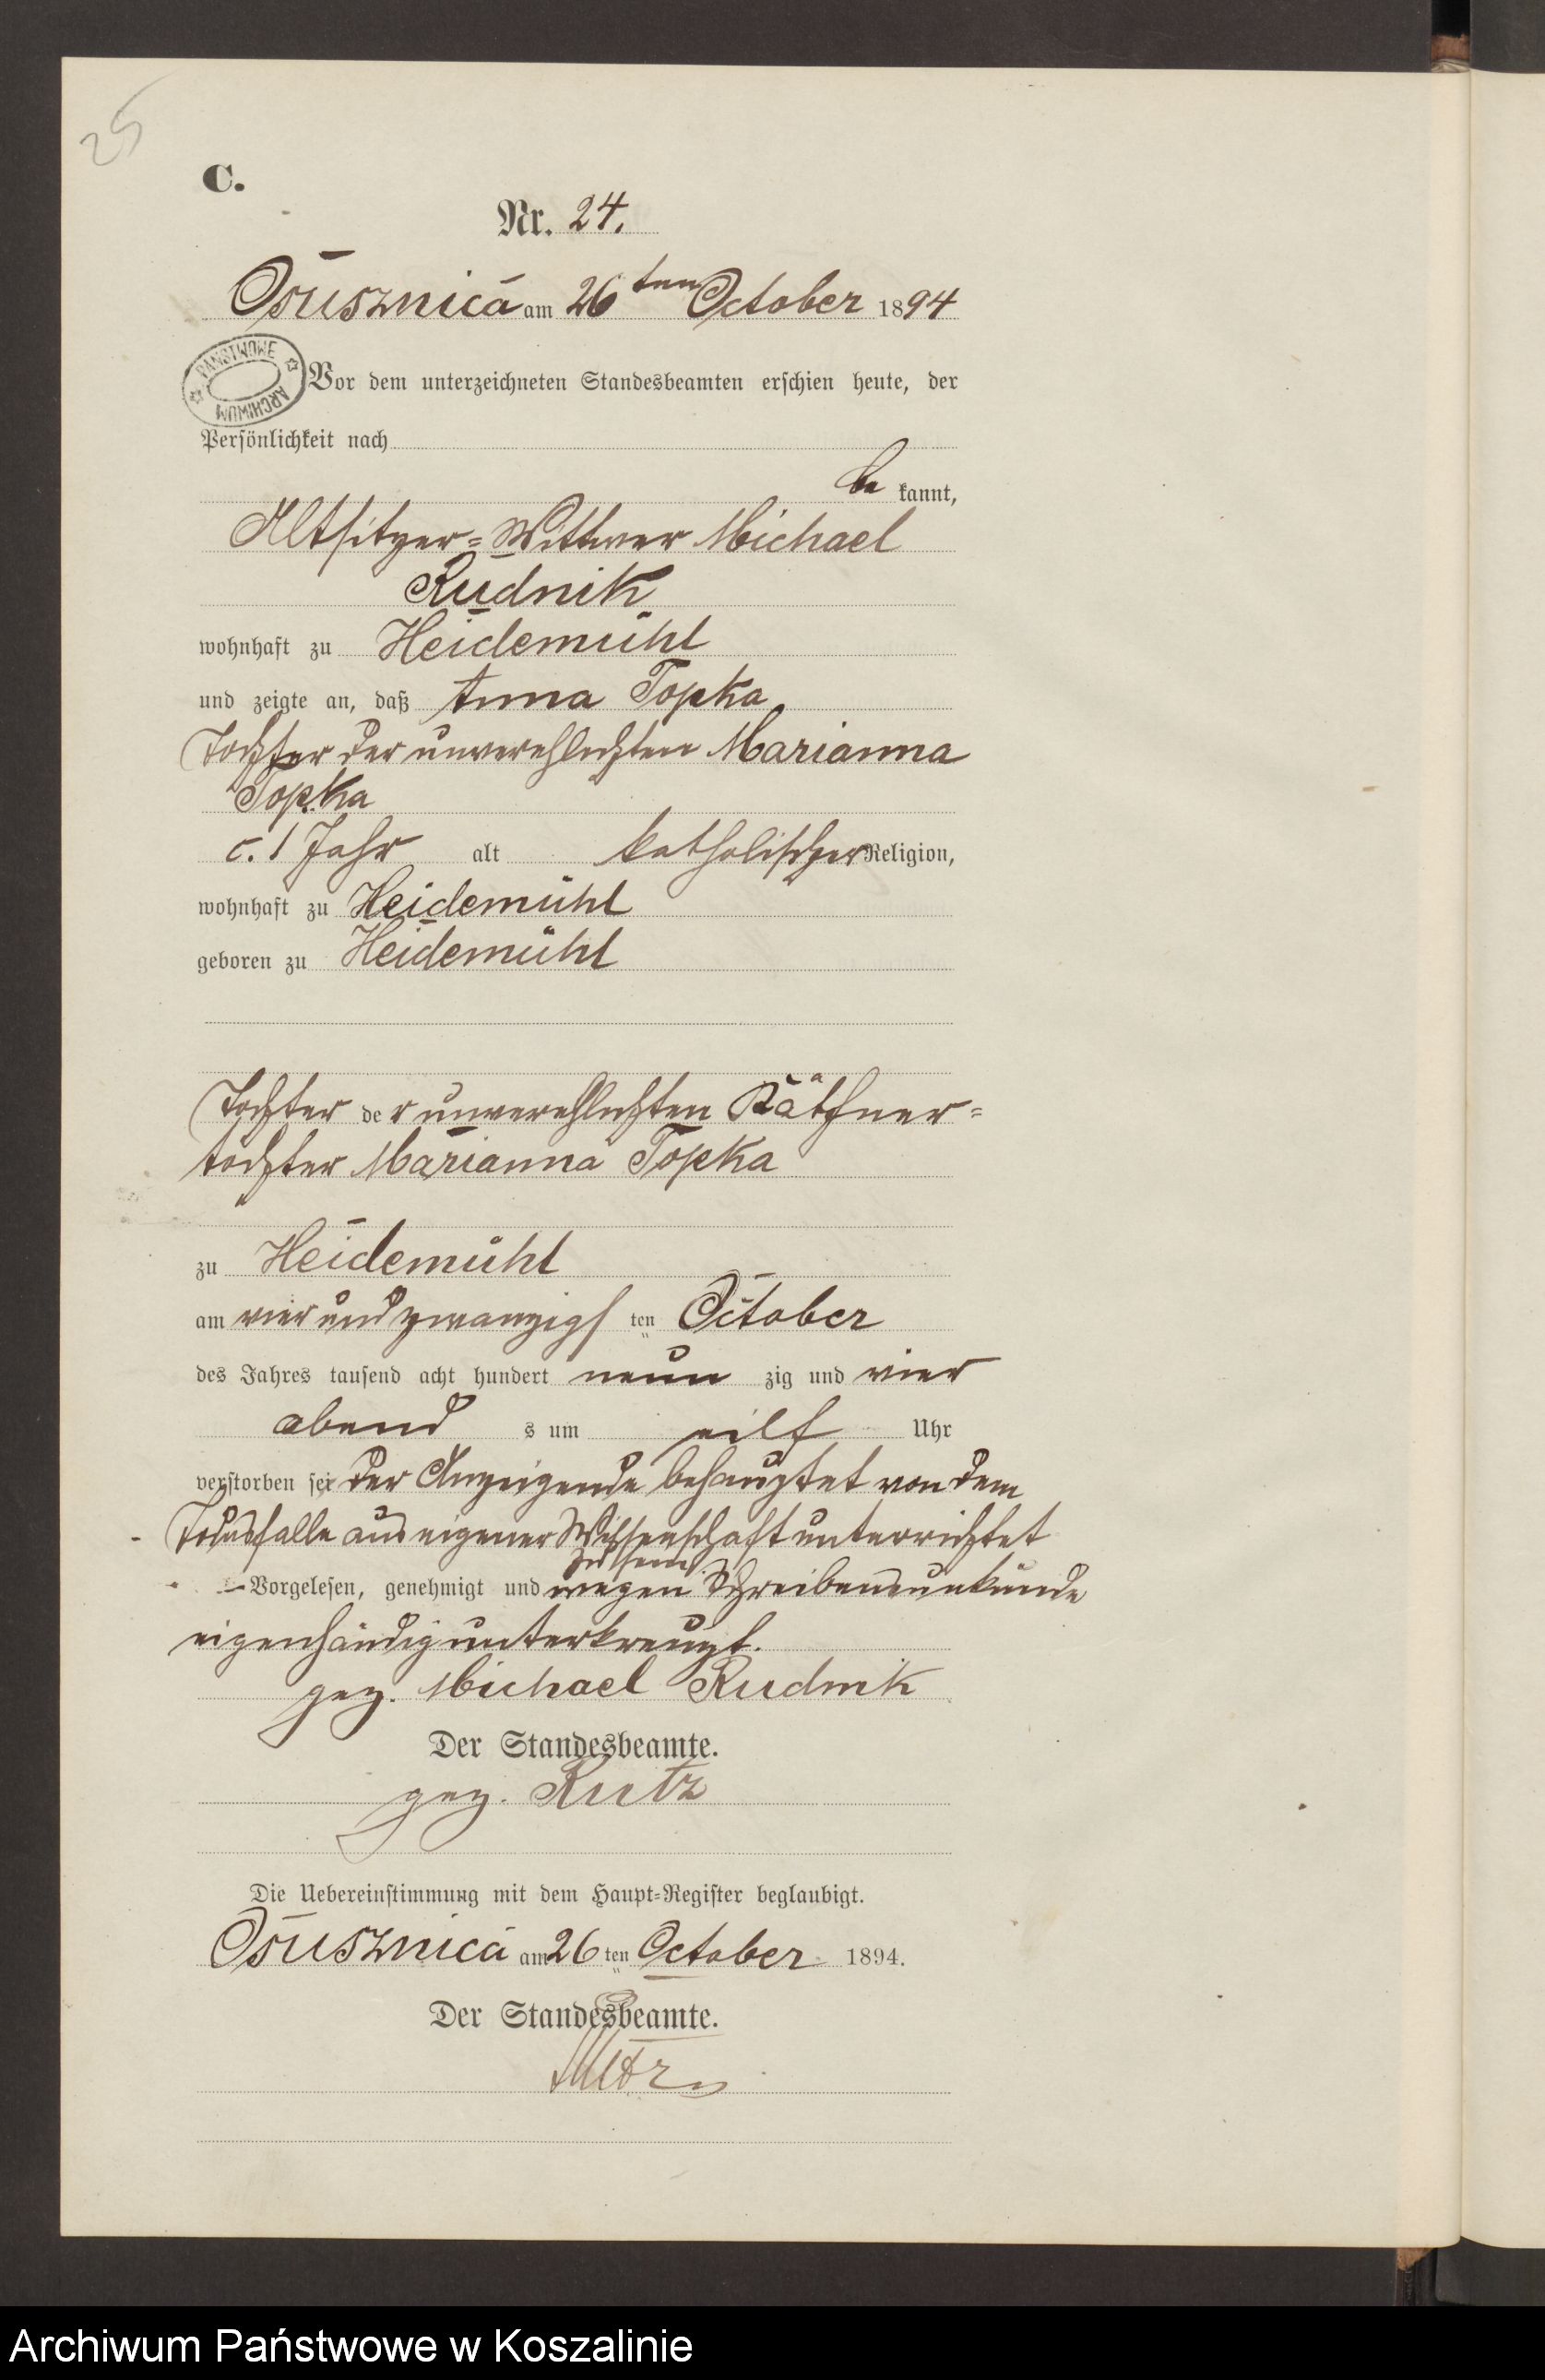 25
C.
Nr. 24.
Osusznica am 26ten October 1894
PAŃSTWOWE ARCHIWUM
Vor dem unterzeichneten Standesbeamten erschien heute, der
Persönlichkeit nach
be kannt,
Altsitzer-Wittwer Michael
Rudnik
wohnhaft zu Heidemühl
und zeigte an, daß Anna Topka
Tochter der unverehlichten Marianna
Topka
c. 1 Jahr alt katholischer Religion,
wohnhaft zu Heidemühl
geboren zu Heidemühl
Tochter der unverehlichten Käthner-
tochter Marianna Topka
zu Heidemühl
am vier und zwanzigs ten October
des Jahres tausend acht hundert neun zig und vier
abend s um eilf Uhr
verstorben sei der Anzeigende behauptet von dem
Todesfalle aus eigener Wissenschaft unterrichtet
zu sein.
Vorgelesen, genehmigt und wegen Schreibensunkunde
eigenhändig unterkreuzt.
gez. Michael Rudnik
Der Standesbeamte.
gez. Kutz
Die Uebereinstimmung mit dem Haupt-Register beglaubigt.
Osusznica am 26 ten October 1894.
Der Standesbeamte.
Archiwum Państwowe w Koszalinie